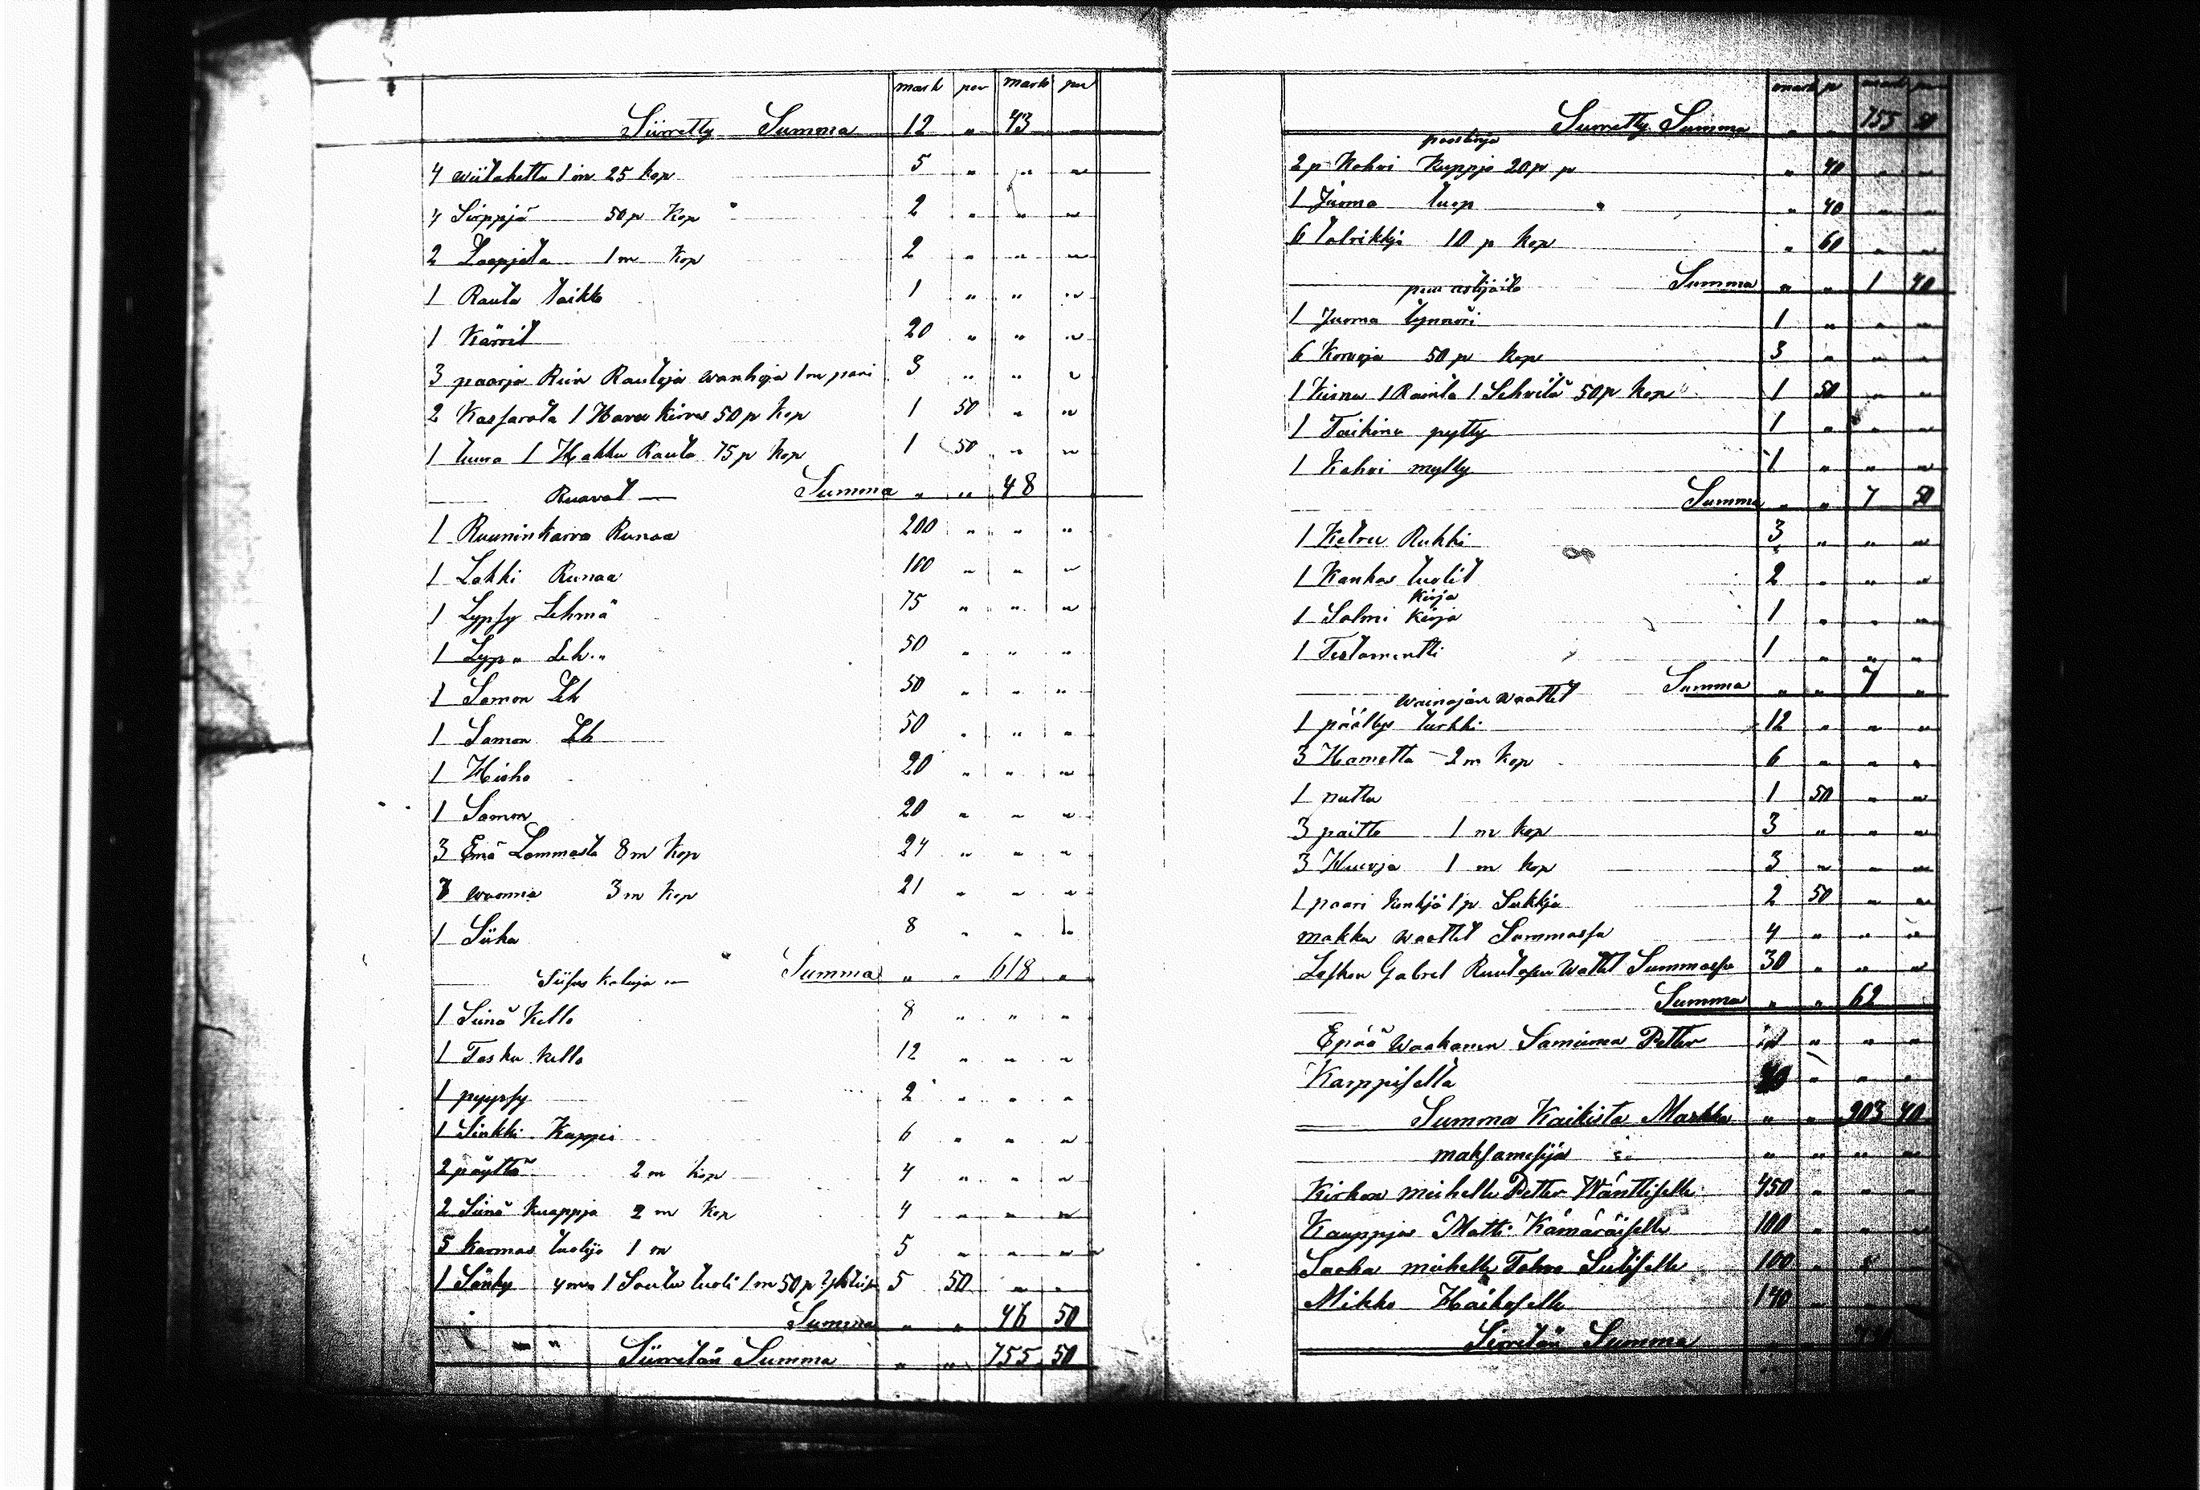 mark pen mark pen
Siirretty Summa 12 " 43 "
4 wiilahetta 1 m 25 kop 5 " " "
4 Sirppjä 50 p Kop " 2 " " "
2 Laapjota 1 m Kop 2 " " "
1 Rauta 1 " " "
1 Kärrit 20 " " "
3 paarja Riin Rautoja wanhoja 1 m pari 3 " " "
2 Kassarata 1 Hara kirves 50 p kop 1 50 " "
1 tuura 1 Hakku Rauta 75 p kop 1 50 " "
Summa " " 48
1 Ruuninkarva Runaa 200 " " "
1 Lakki Runaa 100 " " "
1 Lypsy Lehmä 75 " " "
1 Lyp " Leh " 50 " " "
1 Samon Leh 50 " " "
1 Samon Leh 50 " " "
1 Hieho 20 " " "
1 Samon 20 " " "
3 Emä Lammasta 8 m Kop 24 " " "
7 wuonna 3 m Kop 21 " " "
1 Siika 8 " "
Siisus kaluja — Summa " " 618 "
1 Seinä Kello 8 " " "
1 Tasku kello 12 " " "
1 pyyssy 2 " " "
1 Sinkki Kappi 6 " " "
2 pöyttä 2 m kop 4 " " "
2 Seinä Kuappja 2 m Kop 4 " " "
5 karmas tuolija 1 m 5 " " "
1 Sänky 4 m 1 Soutu tuoli 1 m 50 p 5 50 " "
Summa " " 46 50
Siirretän Summa " " 755 50
mark p mark pen
Siirretty Summa " " 755 50
2 p Kahvi Kuppja 20 p p " 40 " "
1 Juoma tuop " " 40 " "
6 talrikkja 10 p kop " 60 " "
Summa " " 1 40
puu astijoita
1 Juoma tynnöri 1 " " "
6 Korvoja 50 p kop 3 " " "
1 Kirnu 1 Rainta 1 Sehvilä 50 p kop 1 50 " "
1 Taikina pytty 1 " " "
1 Kahvi mylly 1 " " "
Summa " " 7 50
1 Ketru Rukki 3 " " "
1 Kankas tuolit 2 " " "
kirja
1 Salmi kirja 1 " " "
1 Testamentti 1 " " "
Summa " " 7 "
wainajan waattet
1 päällys turkki 12 " " "
3 Hametta 2 m kop 6 " " "
1 nuttu 1 50 " "
3 paitto 1 m kop 3 " " "
3 Huivja 1 m kop 3 " " "
1 paari kenkjä 1 p Sukkja 2 50 " "
makku waattet Summassa 4 " " "
Lesken Gabrel Wattet Summassa 30 " " "
Summa " " 62
Epää Waakanen Petter " " "
Karppisella " " "
Summa Kaikista Markka " " 903 40
maksamisija " " " "
Kirkon miehelle Petter Wänttiselle 450 " " "
Kauppjas Matti Kämäräiselle 100 " " "
miehelle 100 " "
Mikko 140
Siirretän Summa